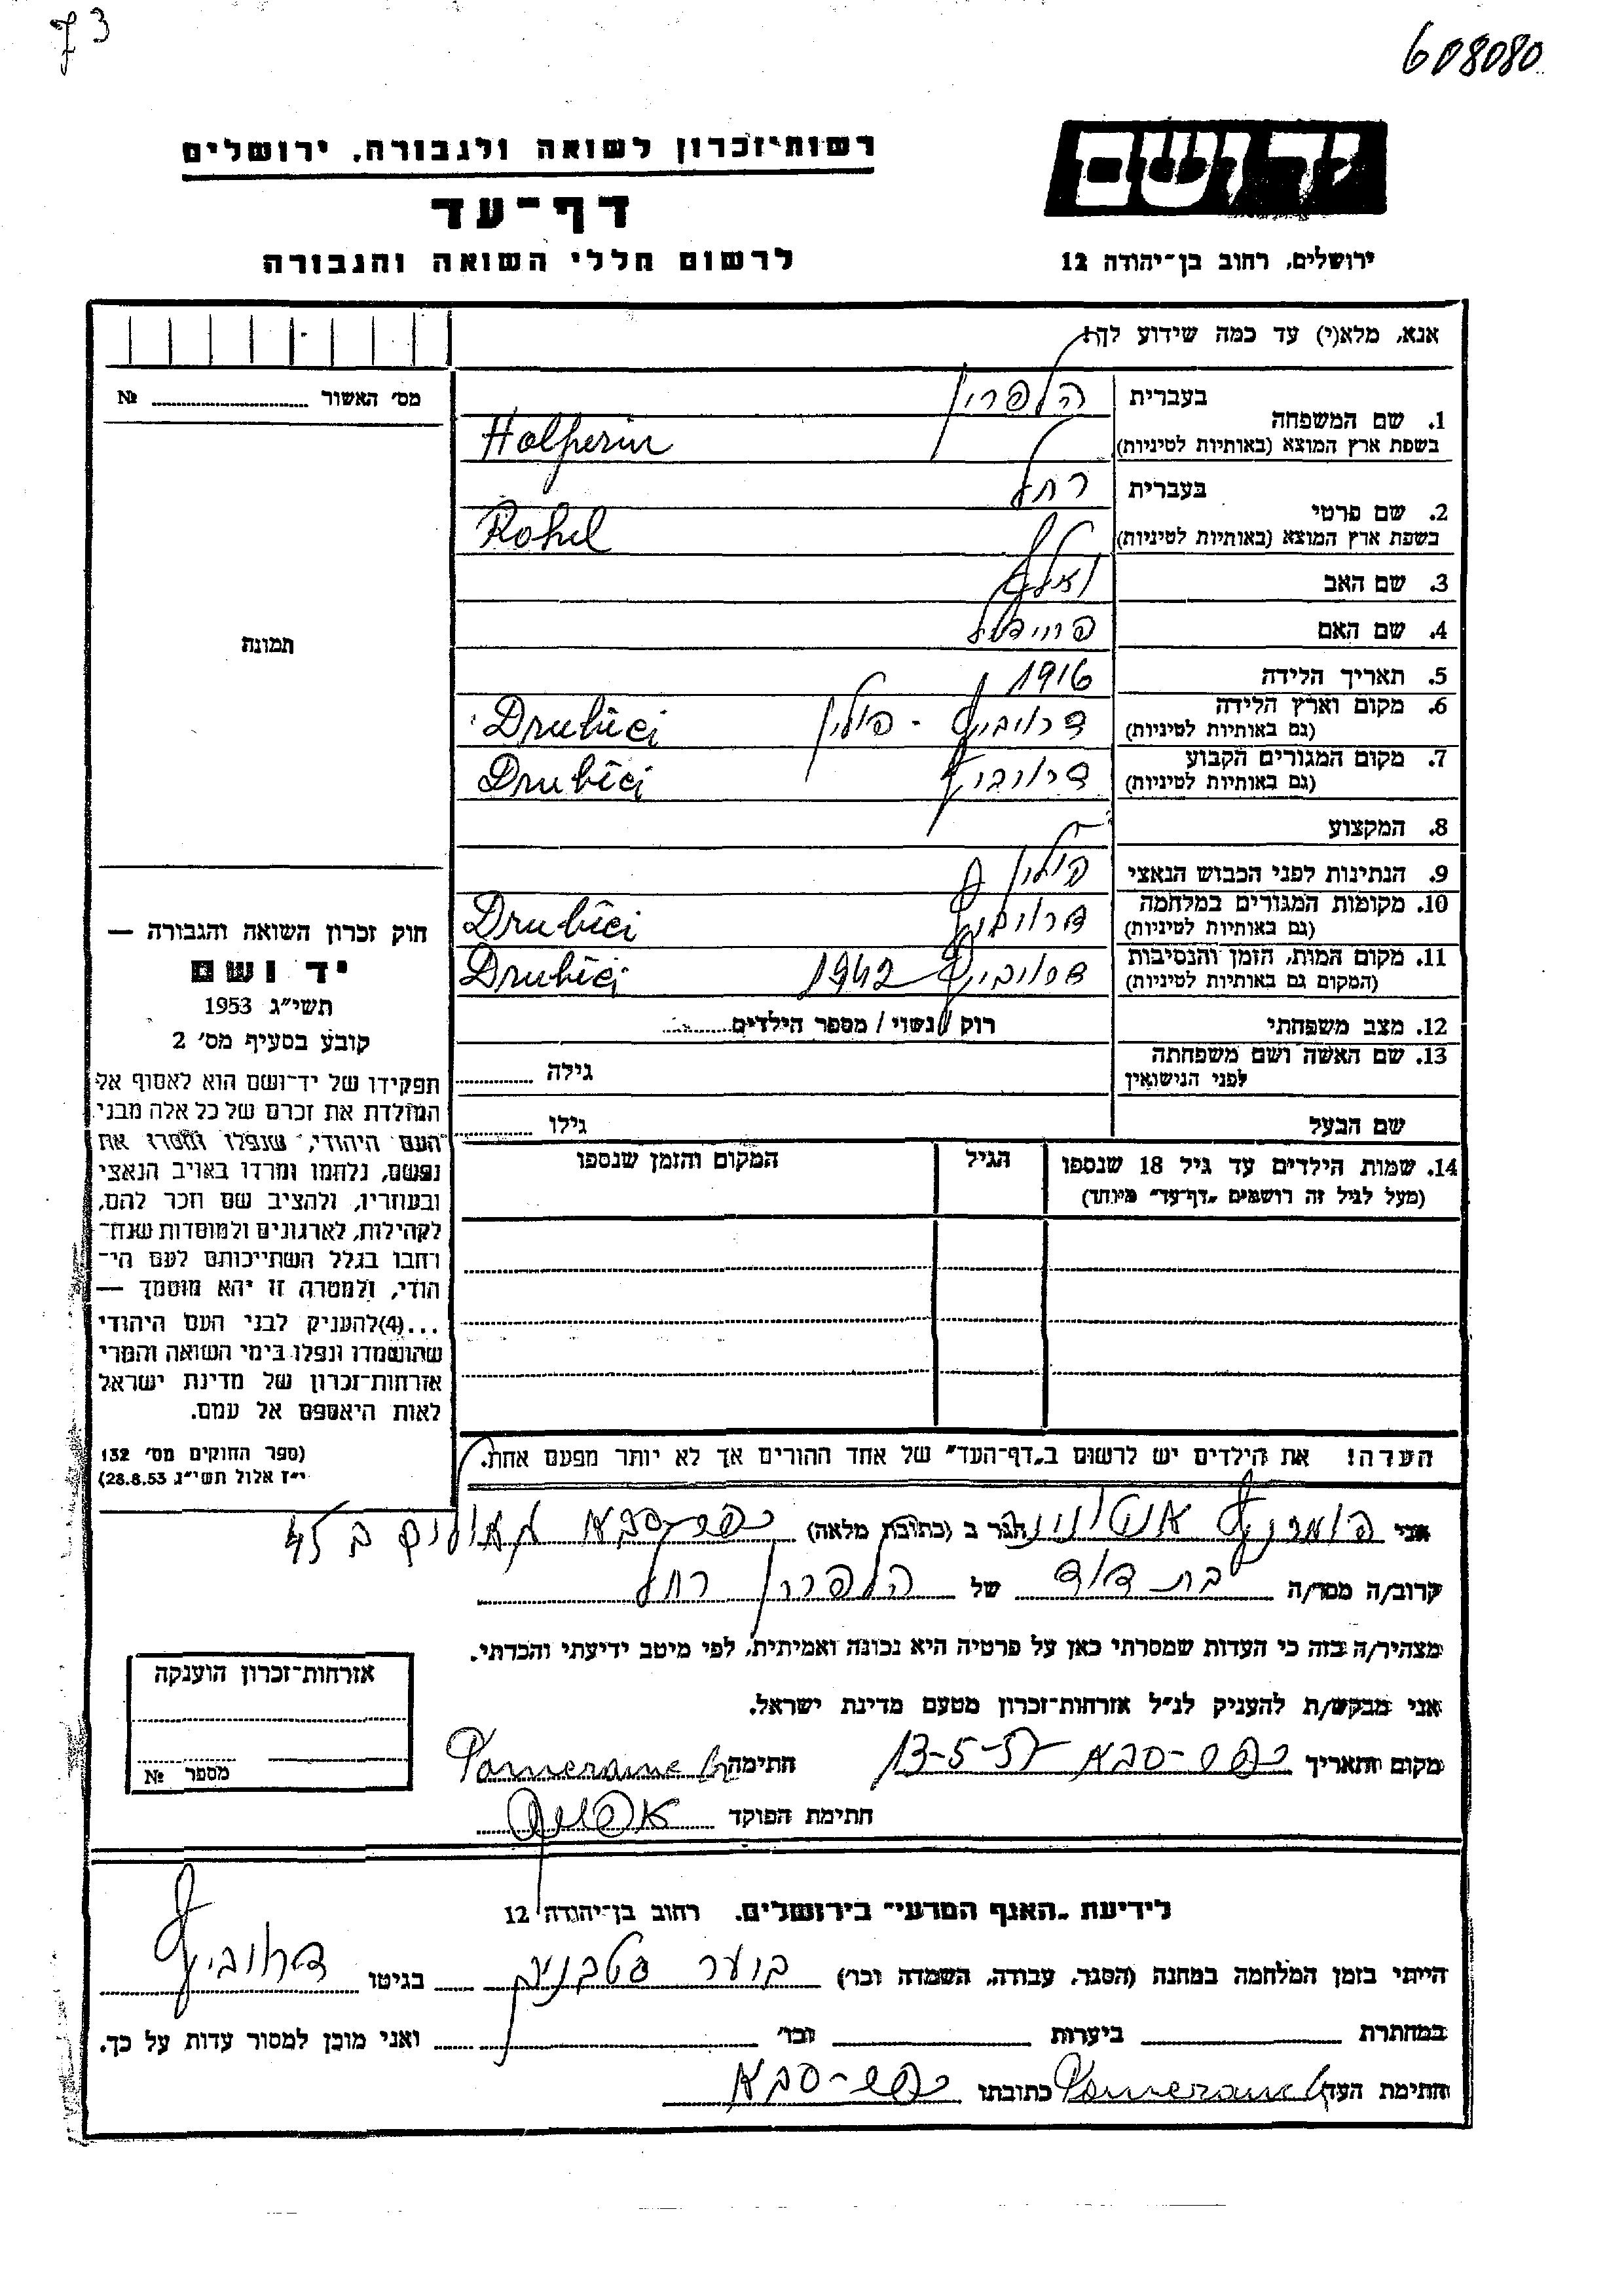 608080
רשות־זכרון לשואה ולגבורה, ירושלים
יד ושם
דף־עד
לרשום חללי השואה והגבורה
ירושלים, רחוב בן־יהודה 12
אנא, מלא(י) עד כמה שידוע לך!
מס׳ האשור № 
1. שם המשפחה בעברית הלפרין
בשפת ארץ המוצא (באותיות לטיניות) Halperin
2. שם פרטי בעברית רחל
בשפת ארץ המוצא (באותיות לטיניות) Rohel
3. שם האב
4. שם האם
תמונה
5. תאריך הלידה 1916
6. מקום וארץ הלידה דרוביץ - פולין
(גם באותיות לטיניות) Drubici
7. מקום המגורים הקבוע דרוביץ
(גם באותיות לטיניות) Drubici
8. המקצוע
9. הנתינות לפני הכבוש הנאצי פולין
10. מקומות המגורים במלחמה דרוביץ
(גם באותיות לטיניות) Drubici
11. מקום המות, הזמן והנסיבות דרוביץ 1942
(המקום גם באותיות לטיניות) Drubici
12. מצב משפחתי רוק / נשוי / מספר הילדים
13. שם האשה ושם משפחתה לפני הנישואין גילה
שם הבעל גילו
14. שמות הילדים עד גיל 18 שנספו הגיל המקום והזמן שנספו
(מעל לגיל זה רושמים „דף־עד״ מיוחד)
חוק זכרון השואה והגבורה —
יד ושם
תשי״ג 1953
קובע בסעיף מס׳ 2
תפקידו של יד־ושם הוא לאסוף אל
המולדת את זכרם של כל אלה מבני
העם היהודי, שנפלו ומסרו את
נפשם, נלחמו ומרדו באויב הנאצי
ובעוזריו, ולהציב שם וזכר להם,
לקהילות, לארגונים ולמוסדות שנח־
רבו בגלל השתייכותם לעם הי־
הודי, ולמטרה זו יהא מוסמך —
...(4)להעניק לבני העם היהודי
שהושמדו ונפלו בימי השואה והמרי
אזרחות־זכרון של מדינת ישראל
לאות היאספם אל עמם.
(ספר החוקים מס׳ 132
י״ז אלול תשי״ג 28.8.53)
הערה! את הילדים יש לרשום ב„דף־העד״ של אחד ההורים אך לא יותר מפעם אחת.
אני פומרנץ הגר ב (כתובת מלאה) כפר-סבא 45
קרוב/ה מסר/ה בת דוד של הלפרין רחל
מצהיר/ה בזה כי העדות שמסרתי כאן על פרטיה היא נכונה ואמיתית, לפי מיטב ידיעתי והכרתי.
אני מבקש/ת להעניק לנ״ל אזרחות־זכרון מטעם מדינת ישראל.
מקום ותאריך כפר-סבא 13-5-57 חתימה
חתימת הפוקד
אזרחות־זכרון הוענקה
מספר №
לידיעת „האגף המדעי״ בירושלים, רחוב בן־יהודה 12
הייתי בזמן המלחמה במחנה (הסגר, עבודה, השמדה וכו׳) בגיטו דרוביץ
במחתרת ביערות וכו׳ ואני מוכן למסור עדות על כך.
חתימת העד כתובתו כפר-סבא